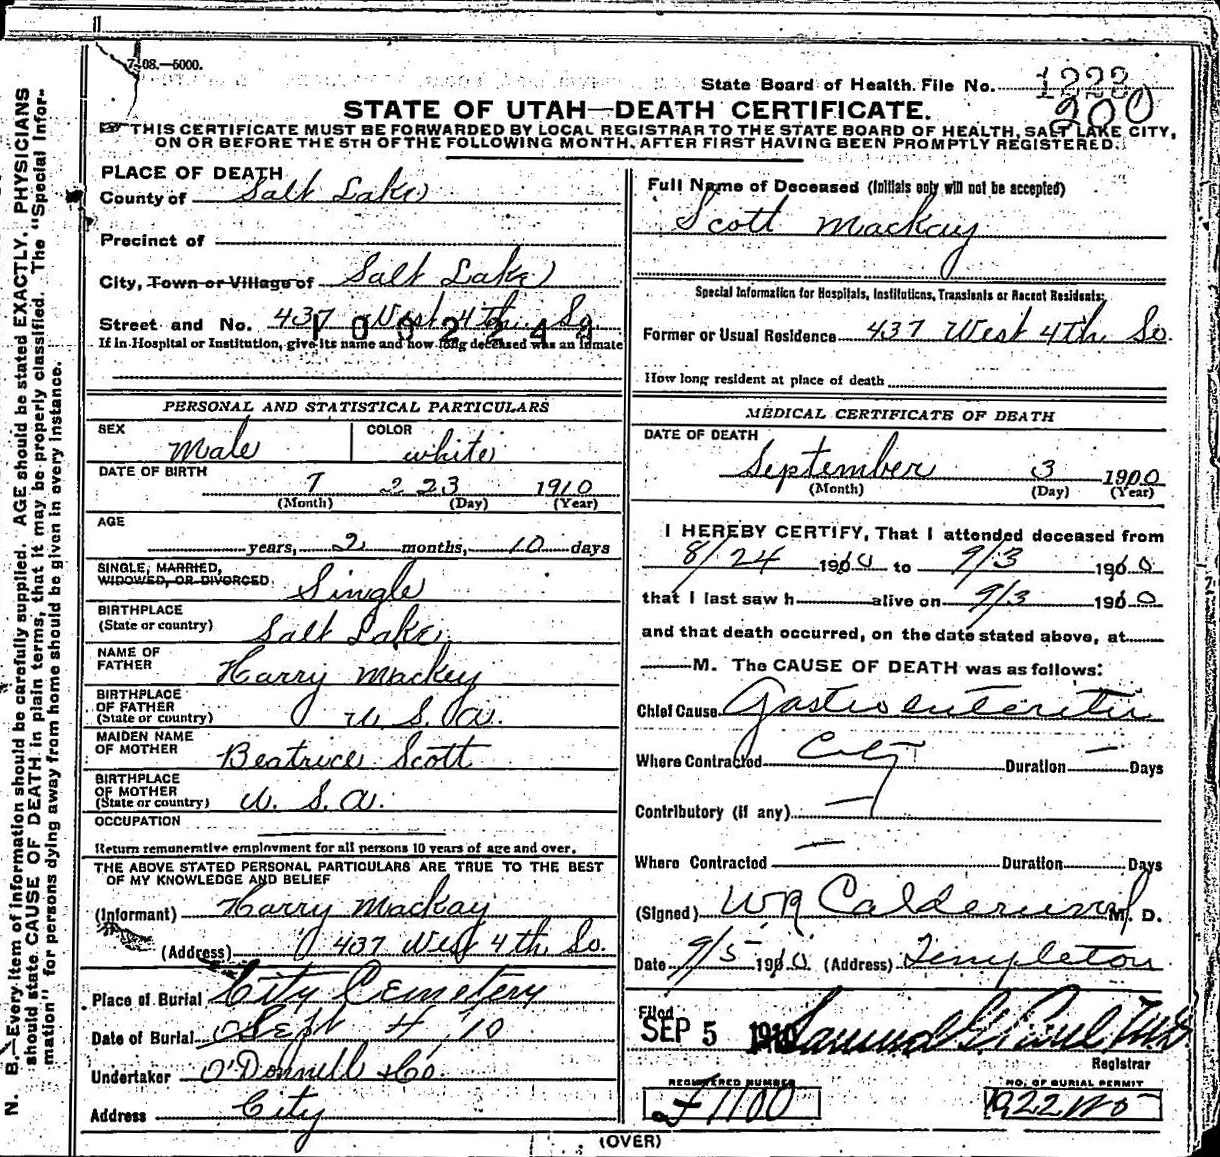 N. B.—Every item of information should be carefully supplied. AGE should be stated EXACTLY. PHYSICIANS
should state CAUSE OF DEATH in plain terms, that it may be properly classified. The "Special Infor-
mation" for persons dying away from home should be given in every instance.
7-08.—5000.
State Board of Health File No. 1223
200
STATE OF UTAH—DEATH CERTIFICATE.
THIS CERTIFICATE MUST BE FORWARDED BY LOCAL REGISTRAR TO THE STATE BOARD OF HEALTH, SALT LAKE CITY,
ON OR BEFORE THE 5TH OF THE FOLLOWING MONTH, AFTER FIRST HAVING BEEN PROMPTLY REGISTERED.
PLACE OF DEATH
County of Salt Lake
Precinct of
City, Town or Village of Salt Lake
Street and No. 437 West 4th So
If in Hospital or Institution, give its name and how long deceased was an inmate
PERSONAL AND STATISTICAL PARTICULARS
SEX Male COLOR white
DATE OF BIRTH
7 223 1910
(Month) (Day) (Year)
AGE
years, 2 months, 10 days
SINGLE, MARRIED,
WIDOWED, OR DIVORCED. Single
BIRTHPLACE
(State or country) Salt Lake
NAME OF
FATHER Harry Mackey
BIRTHPLACE
OF FATHER
(State or country) U. S. A.
MAIDEN NAME
OF MOTHER Beatrice Scott
BIRTHPLACE
OF MOTHER
(State or country) U. S. A.
OCCUPATION
Return remunerative employment for all persons 10 years of age and over.
THE ABOVE STATED PERSONAL PARTICULARS ARE TRUE TO THE BEST
OF MY KNOWLEDGE AND BELIEF
(Informant) Harry Mackay
(Address) 437 West 4th So.
Place of Burial City Cemetery
Date of Burial Sept 4, '10
Undertaker O'Donnell & Co.
Address City
Full Name of Deceased (Initials only will not be accepted)
Scott Mackay
Special Information for Hospitals, Institutions, Transients or Recent Residents:
Former or Usual Residence 437 West 4th So.
How long resident at place of death
MEDICAL CERTIFICATE OF DEATH
DATE OF DEATH
September 3 1900
(Month) (Day) (Year)
I HEREBY CERTIFY, That I attended deceased from
8/24 1910 to 9/3 1910
that I last saw h alive on 9/3 1910
and that death occurred, on the date stated above, at
M. The CAUSE OF DEATH was as follows:
Chief Cause Gastro enteritis
Where Contracted City Duration — Days
Contributory (if any) —
Where Contracted — Duration Days
(Signed) WR Calderwood M. D.
Date 9/5 1910 (Address) Templeton
Filed
SEP 5 1910 Samuel G. Paul M.D.
Registrar
REGISTERED NUMBER
F1100
NO. OF BURIAL PERMIT
(OVER)